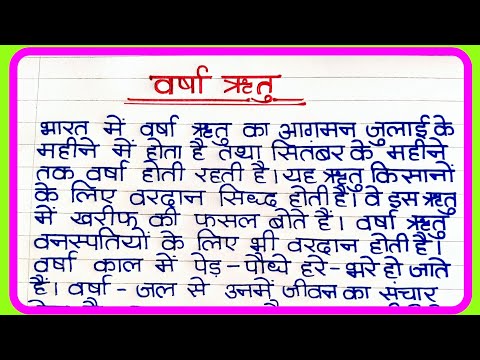 वर्षा ऋतु
भारत में वर्षा ऋतु का आगमन जुलाई के
महीने में होता है तथा सितंबर के महीने
तक वर्षा होती रहती है। यह ऋतु किसानों
के लिए वरदान सिध्द होती है। वे इस ऋतु
में खरीफ की फसल बोते हैं। वर्षा ऋतु
वनस्पतियों के लिए भी वरदान होती है।
वर्षा काल में पेड़ - पौध्ये हरे - भरे हो जाते
हैं। वर्षा - जल से उनमें जीवन का संचार